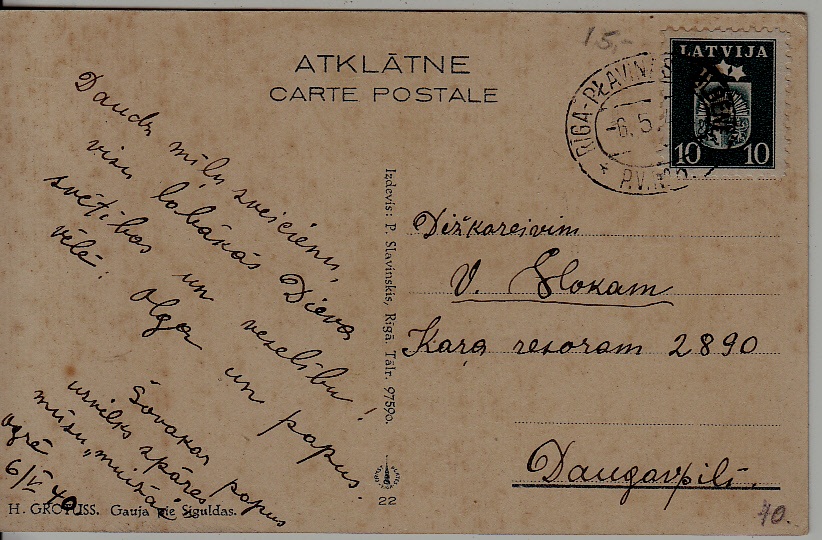 15,-
ATKLĀTNE
CARTE POSTALE
LATVIJA
10 10
RĪGA-PĻAVIŅAS
-6.5.
Daudz mīļu sveicienu,
visu labākās Dieva
svētības un veselību!
vēlē: Olga un papus.
Šovakar papus
uzvilks spāres
mūsu „muižā"
Ogrē
6/V 40
Izdevis: P. Slavinskis, Rīgā. Tālr. 97590.
22
Dižkareivim
V. Slokam
Kaŗa resoram 2890
Daugavpilī.
H. GROTUSS. Gauja pie Siguldas.
40.